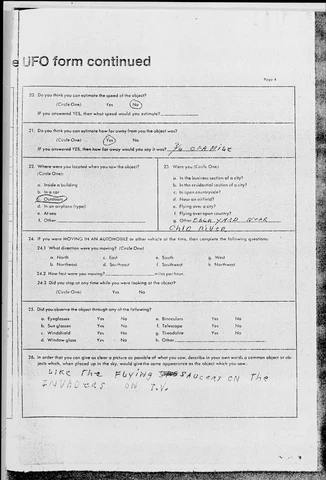 e UFO form continued
Page 4
20. Do you think you can estimate the speed of the object?
(Circle One) Yes No
If you answered YES, then what speed would you estimate?
21. Do you think you can estimate how far away from you the object was?
(Circle One) Yes No
If you answered YES, then how far away would you say it was? OF A MILE
22. Where were you located when you saw the object?
(Circle One):
a. Inside a building
b. In a car
c. Outdoors
d. In an airplane (type)
e. At sea
f. Other
23. Were you (Circle One)
a. In the business section of a city?
b. In the residential section of a city?
c. In open countryside?
d. Near an airfield?
e. Flying over a city?
f. Flying over open country?
g. Other BACK YARD NEAR
RIVER
24. If you were MOVING IN AN AUTOMOBILE or other vehicle at the time, then complete the following questions:
24.1 What direction were you moving? (Circle One)
a. North c. East e. South g. West
b. Northeast d. Southeast f. Southwest h. Northwest
24.2 How fast were you moving? miles per hour.
24.3 Did you stop at any time while you were looking at the object?
(Circle One) Yes No
25. Did you observe the object through any of the following?
a. Eyeglasses Yes No e. Binoculars Yes No
b. Sun glasses Yes No f. Telescope Yes No
c. Windshield Yes No g. Theodolite Yes No
d. Window glass Yes No h. Other
26. In order that you can give as clear a picture as possible of what you saw, describe in your own words a common object or ob-
jects which, when placed up in the sky, would give the same appearance as the object which you saw.
LIKE The FLYING SAUCERS ON The
INVADERS ON T.V.